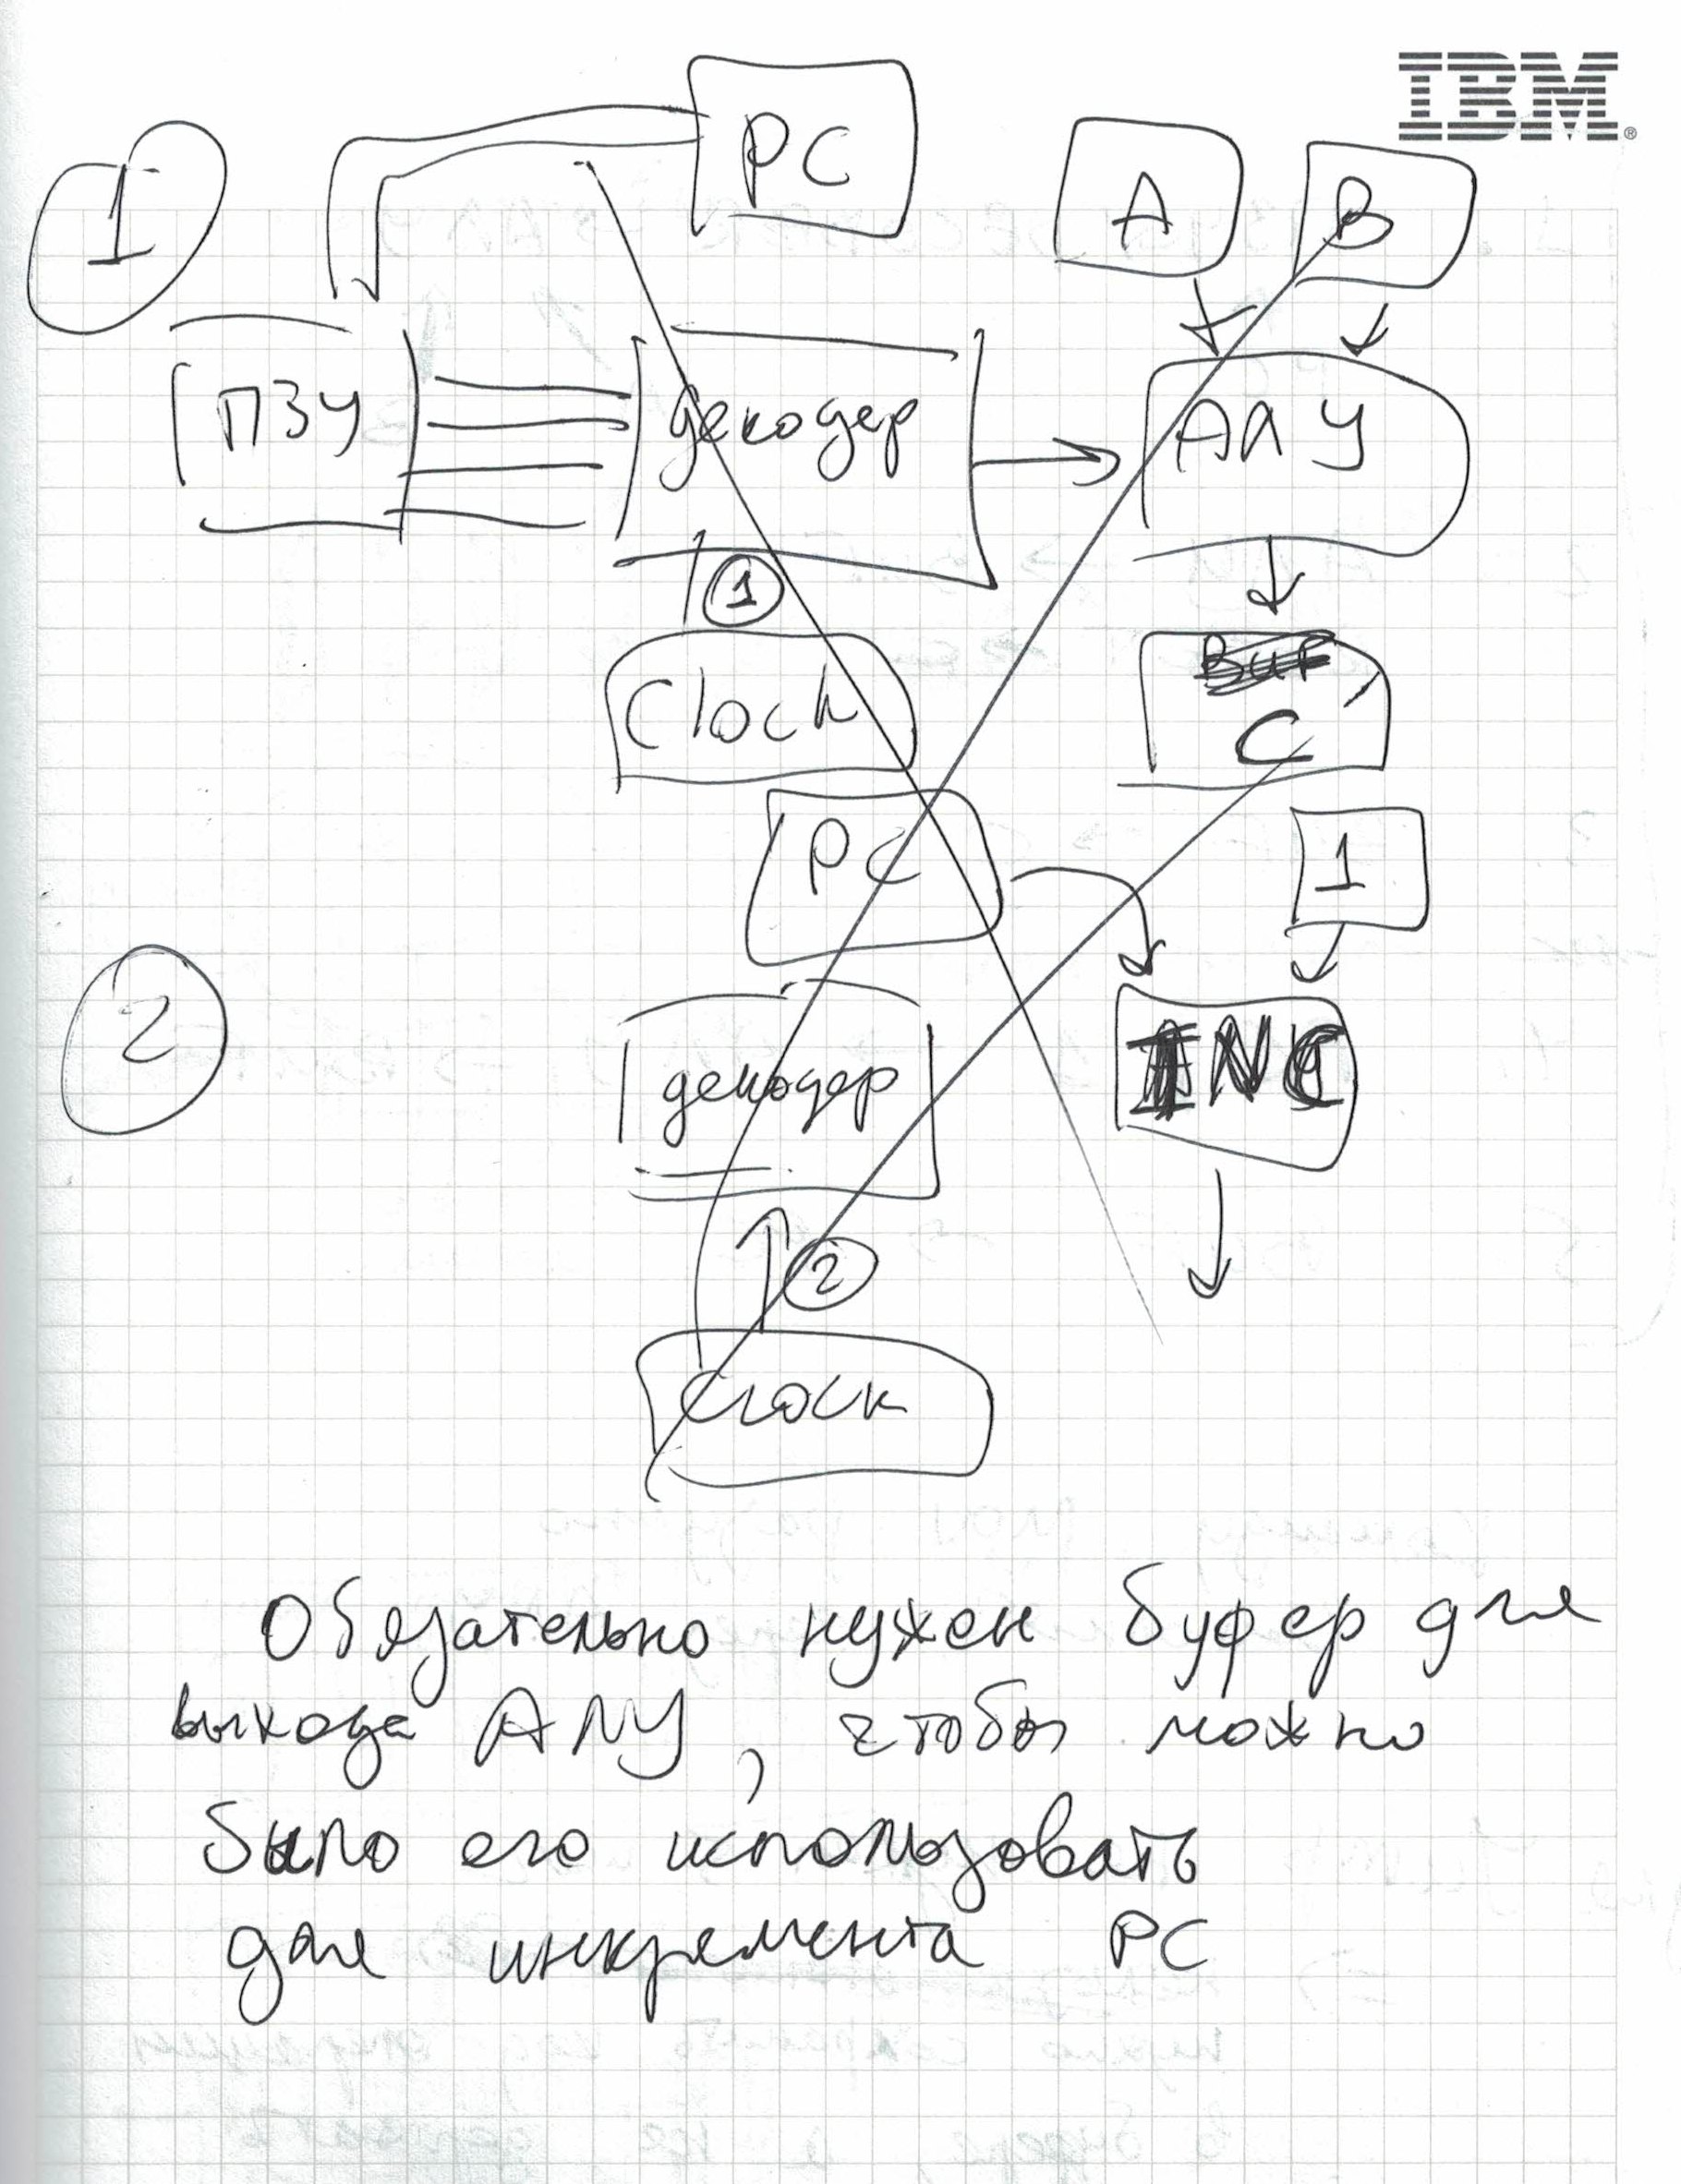 IBM®
1
PC
A
B
ПЗУ
декодер
АЛУ
1
Clock
Buf
C
PC
1
2
декодер
INC
2
Clock
Обязательно нужен буфер для
выхода АЛУ, чтобы можно
было его использовать
для инкремента PC